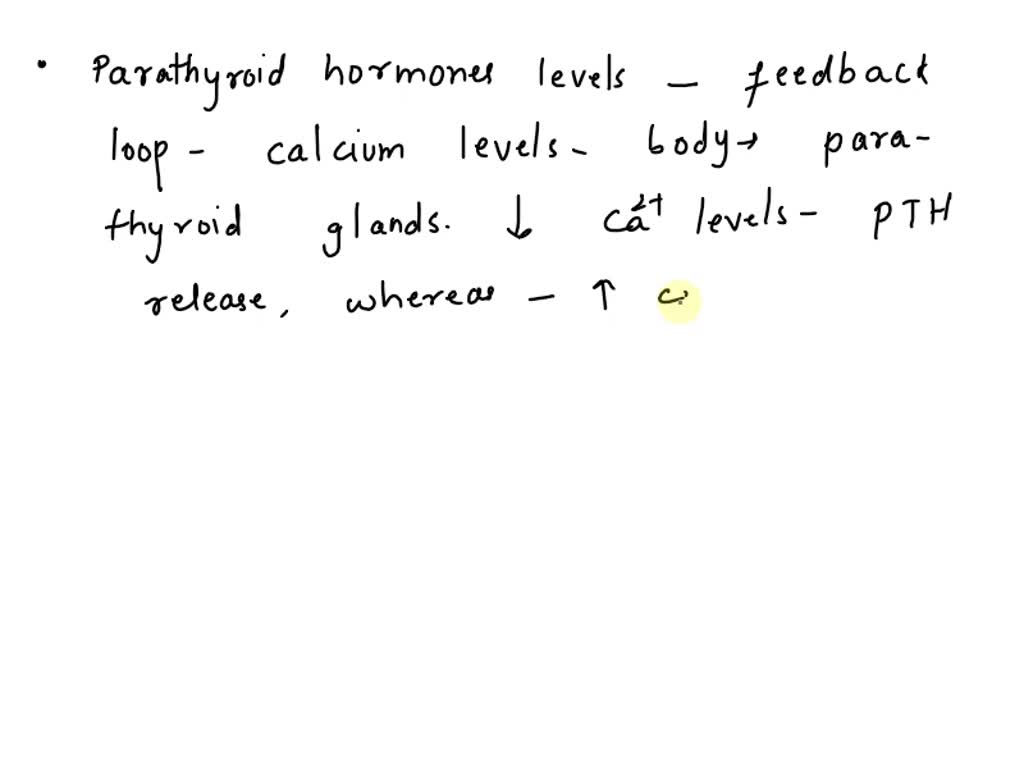 • Parathyroid hormones levels - feedback
loop - calcium levels - body → para-
thyroid glands. ↓ Ca²⁺ levels - PTH
release, whereas - ↑